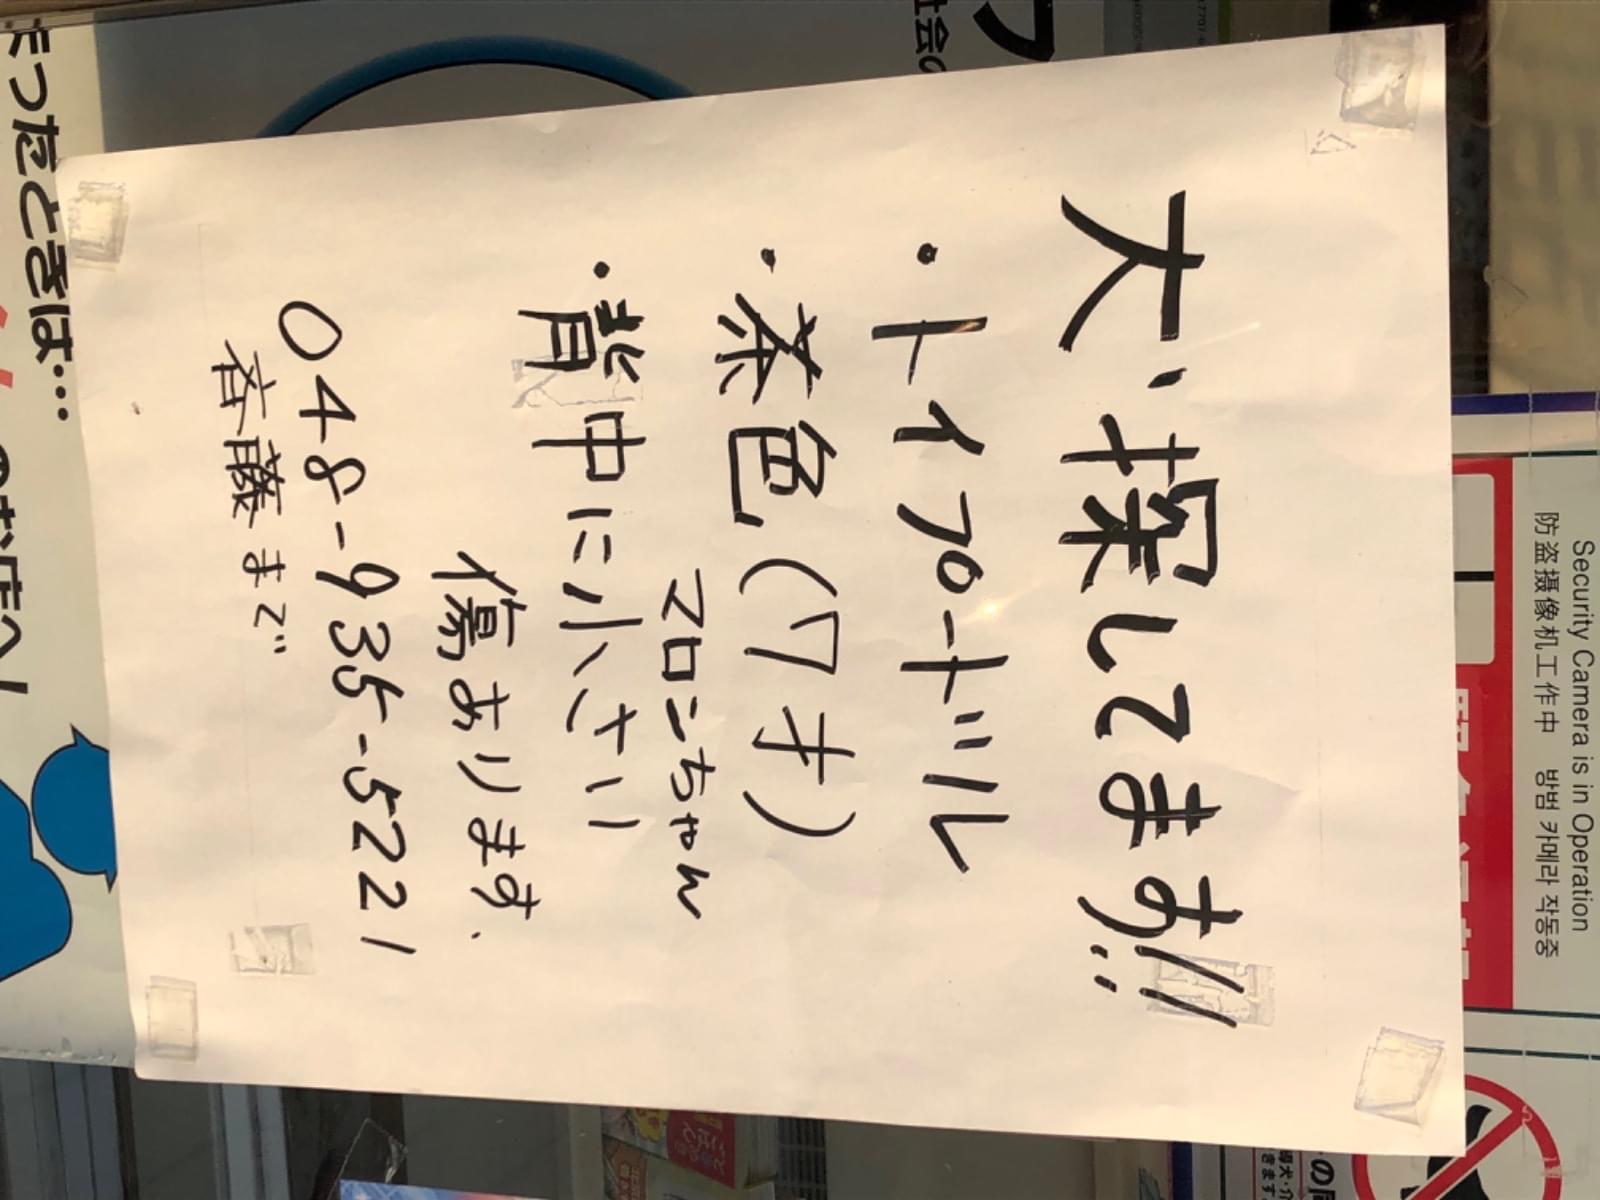 犬、探してます!!
・トイプードル
・茶色(7才)
マロンちゃん
・背中に小さい
傷あります.
048-935-5221
斉藤まで
Security Camera is in Operation
防盗摄像机工作中 방범 카메라 작동중
まったときは…